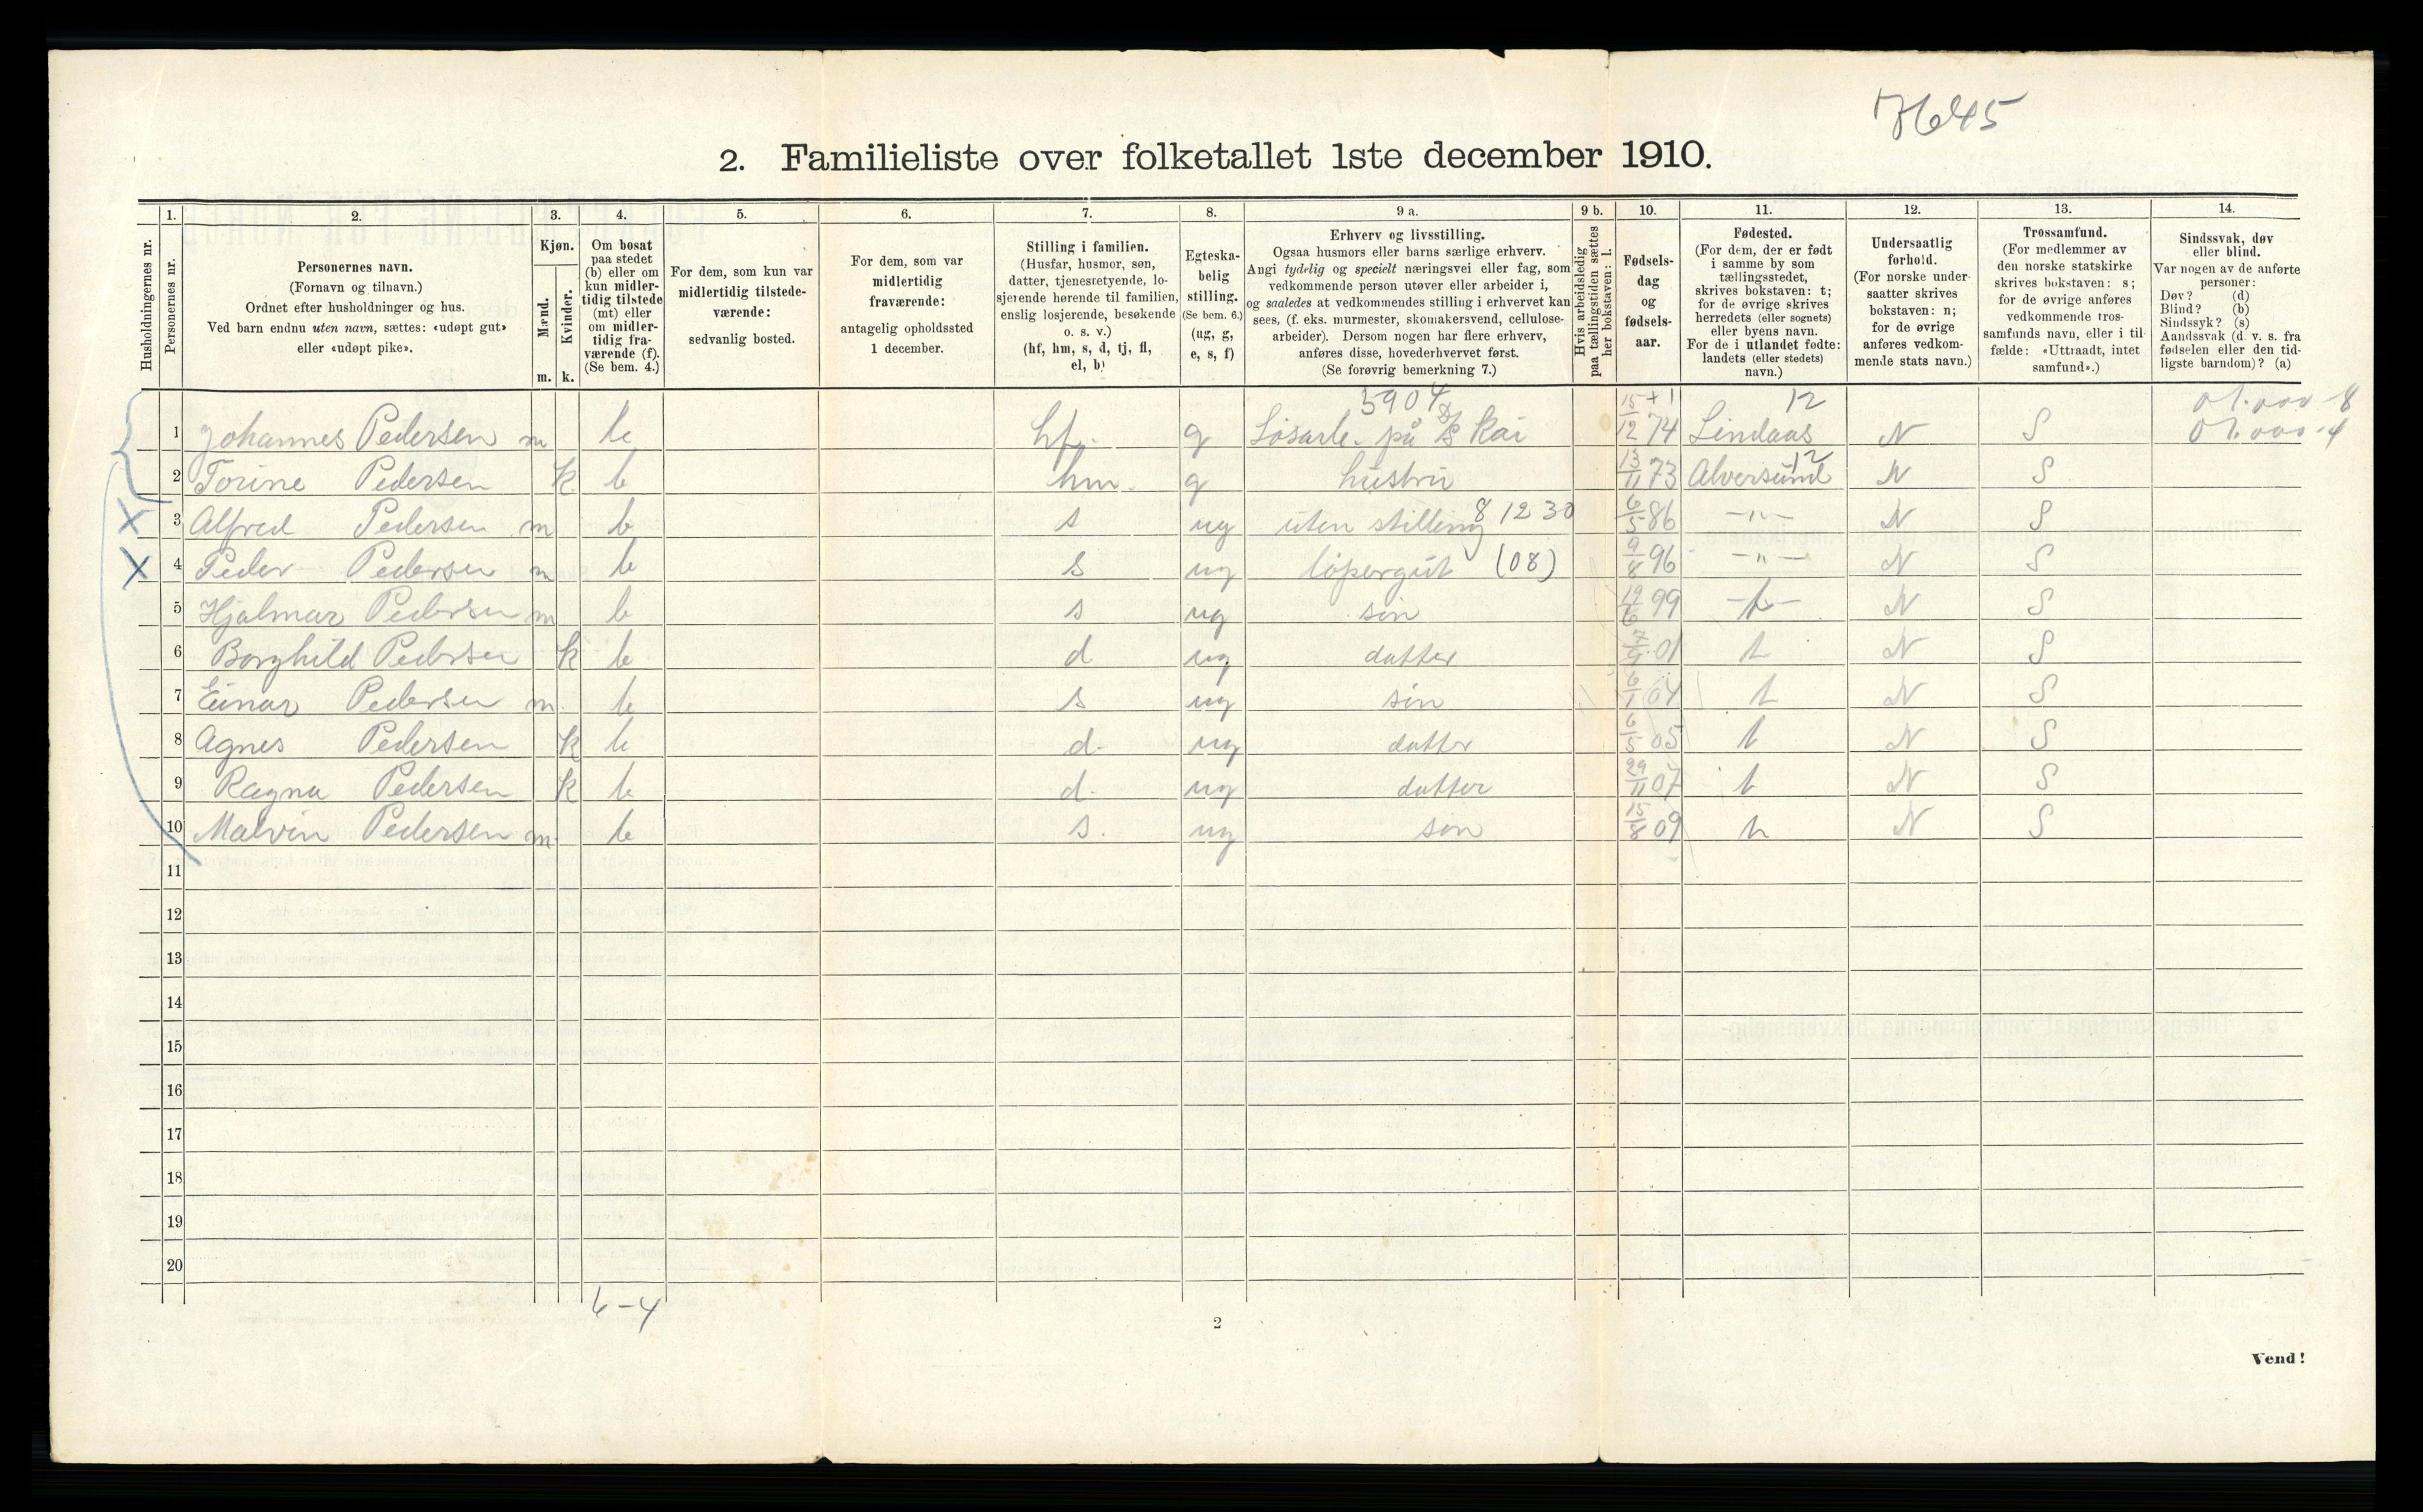 7645
2. Familieliste over folketallet 1ste december 1910.
Husholdningernes nr.
1. Personernes nr.
2. Personernes navn.
(Fornavn og tilnavn.)
Ordnet efter husholdninger og hus.
Ved barn endnu uten navn, sættes: «udøpt gut»
eller «udøpt pike».
3. Kjøn.
Mænd. m.
Kvinder. k.
4. Om bosat
paa stedet
(b) eller om
kun midler-
tidig tilstede
(mt) eller
om midler-
tidig fra-
værende (f).
(Se bem. 4.)
5. For dem, som kun var
midlertidig tilstede-
værende:
sedvanlig bosted.
6. For dem, som var
midlertidig
fraværende:
antagelig opholdssted
1 december.
7. Stilling i familien.
(Husfar, husmor, søn,
datter, tjenestetyende, lo-
sjerende hørende til familien,
enslig losjerende, besøkende
o. s. v.)
(hf, hm, s, d, tj, fl,
el, b)
8. Egteska-
belig
stilling.
(Se bem. 6.)
(ug, g,
e, s, f)
9 a. Erhverv og livsstilling.
Ogsaa husmors eller barns særlige erhverv.
Angi tydelig og specielt næringsvei eller fag, som
vedkommende person utøver eller arbeider i,
og saaledes at vedkommendes stilling i erhvervet kan
sees, (f. eks. murmester, skomakersvend, cellulose-
arbeider). Dersom nogen har flere erhverv,
anføres disse, hovederhvervet først.
(Se forøvrig bemerkning 7.)
9 b. Hvis arbeidsledig
paa tællingstiden sættes
her bokstaven: l.
10. Fødsels-
dag
og
fødsels-
aar.
11. Fødested.
(For dem, der er født
i samme by som
tællingsstedet,
skrives bokstaven: t;
for de øvrige skrives
herredets (eller sognets)
eller byens navn.
For de i utlandet fødte:
landets (eller stedets)
navn.)
12. Undersaatlig
forhold.
(For norske under-
saatter skrives
bokstaven: n;
for de øvrige
anføres vedkom-
mende stats navn.)
13. Trossamfund.
(For medlemmer av
den norske statskirke
skrives bokstaven: s;
for de øvrige anføres
vedkommende tros-
samfunds navn, eller i til-
fælde: «Uttraadt, intet
samfund».)
14. Sindssvak, døv
eller blind.
Var nogen av de anførte
personer:
Døv? (d)
Blind? (b)
Sindssyk? (s)
Aandssvak (d. v. s. fra
fødselen eller den tid-
ligste barndom)? (a)
5904 12
1 Johannes Pedersen m b hf. g Løsarb. på D/S Kai 15/12 74 Lindaas N S
12
2 Torine Pedersen k b hm. g hustru 13/11 73 Alversund N S
X 3 Alfred Pedersen m b s ug uten stilling 8 12 30 6/5 86 -"- N S
X 4 Peder Pedersen m b s ug løpergut (08) 9/8 96 -"- N S
5 Hjalmar Pedersen m b s ug søn 19/6 99 -t- N S
6 Borghild Pedersen k b d ug datter 7/9 01 t N S
7 Einar Pedersen m. b s ug søn 6/1 04 t N S
8 Agnes Pedersen k b d. ug datter 6/5 05 t N S
9 Ragna Pedersen k b d. ug datter 29/11 07 t N S
10 Malvin Pedersen m. b s. ug søn 15/8 09 t N S
11
12
13
14
15
16
17
18
19
20
6-4
2
Vend!